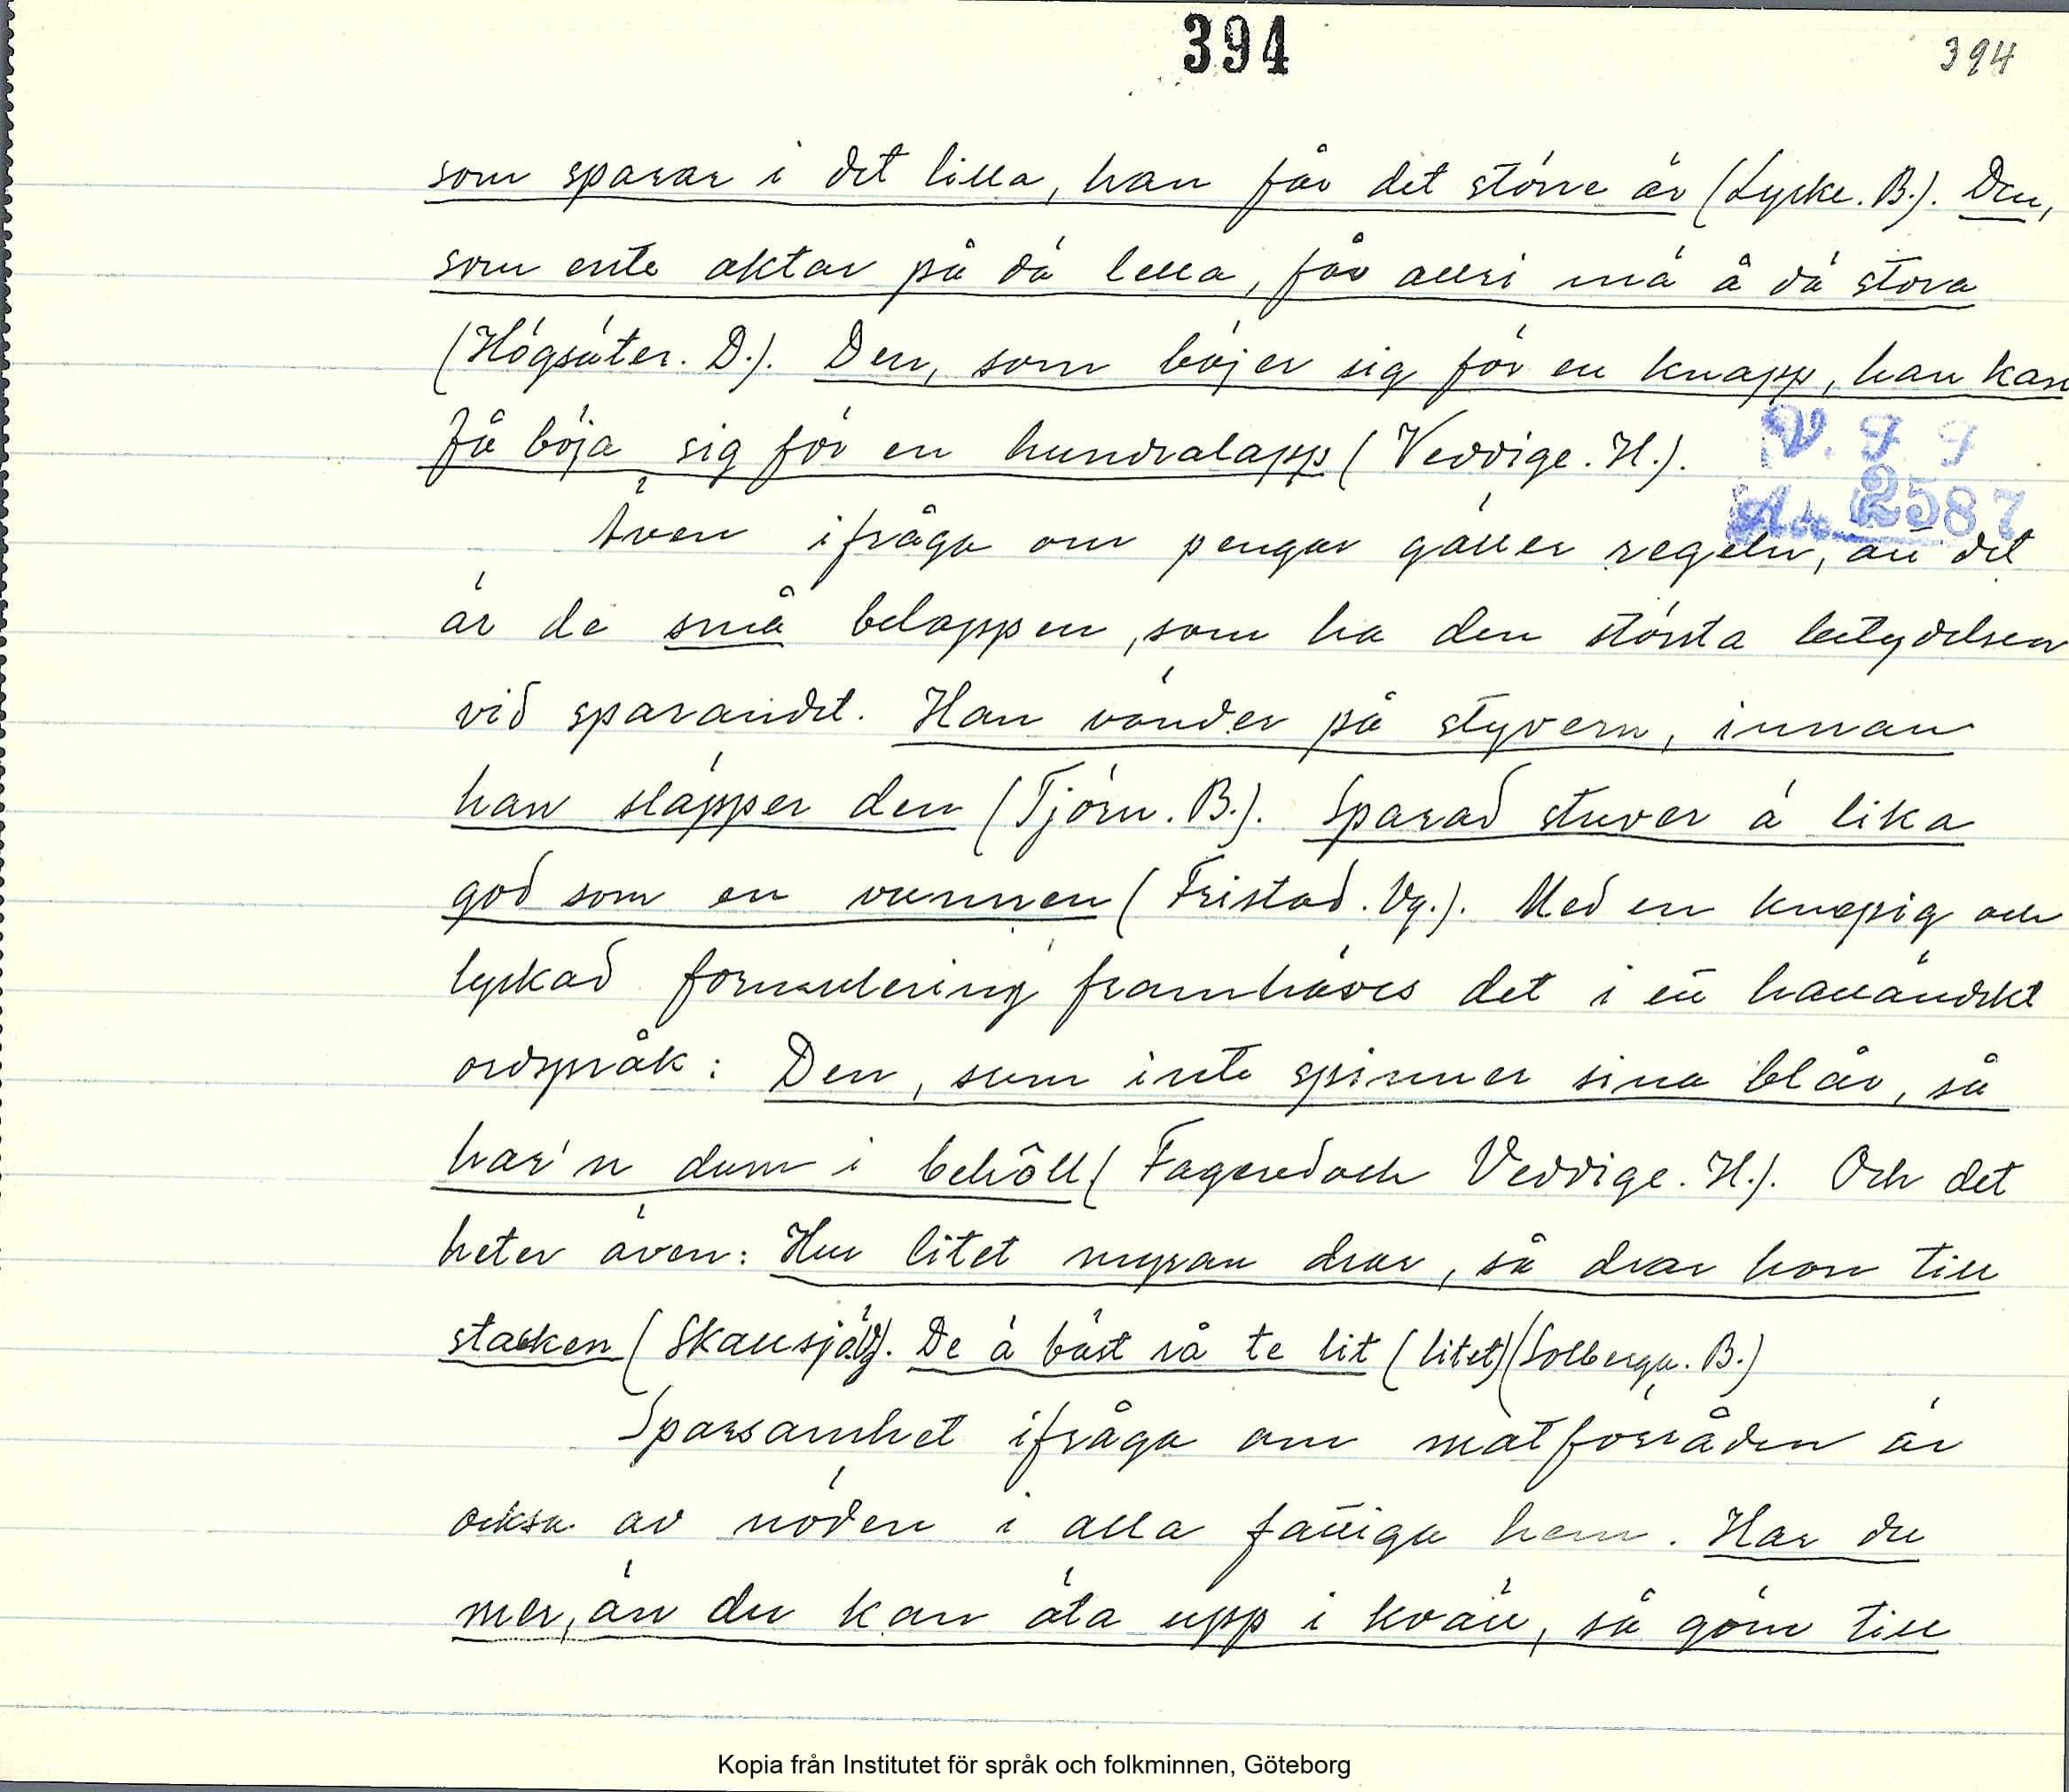 394
394
som sparar i det lilla, han får det större är (Lycke. B.). Den,
som ente aktar på dä lella, får alltri mä å dä stora
(Högsäter. D.). Den, som böjer sig för en knapp, han kan
få böja sig för en hundralapp (Veddige. H.).
V. F. F
Acc. 2587
Även ifråga om pengar gäller regeln, att det
är de små beloppen, som ha den största betydelsen
vid sparandet. Han vänder på styvern, innan
han släpper den (Tjörn. B.). Sparad stuver ä lika
god som en vunnen (Fristad. Vg.). Med en knepig och
lyckad formulering framhäves det i ett halländskt
ordspråk: Den, sum inte spinner sina blår, så
har'n dum i behôll (Fagered och Veddige. H.). Och det
heter även: Hur litet myran drar, så drar hon till
stacken (Skallsjö. Vg). De ä bäst rå te lit (litet) (Solberga. B.)
Sparsamhet ifråga om matförråden är
också av nöden i alla fattiga hem. Har du
mer, än du kan äta upp i kväll, så göm till
Kopia från Institutet för språk och folkminnen, Göteborg